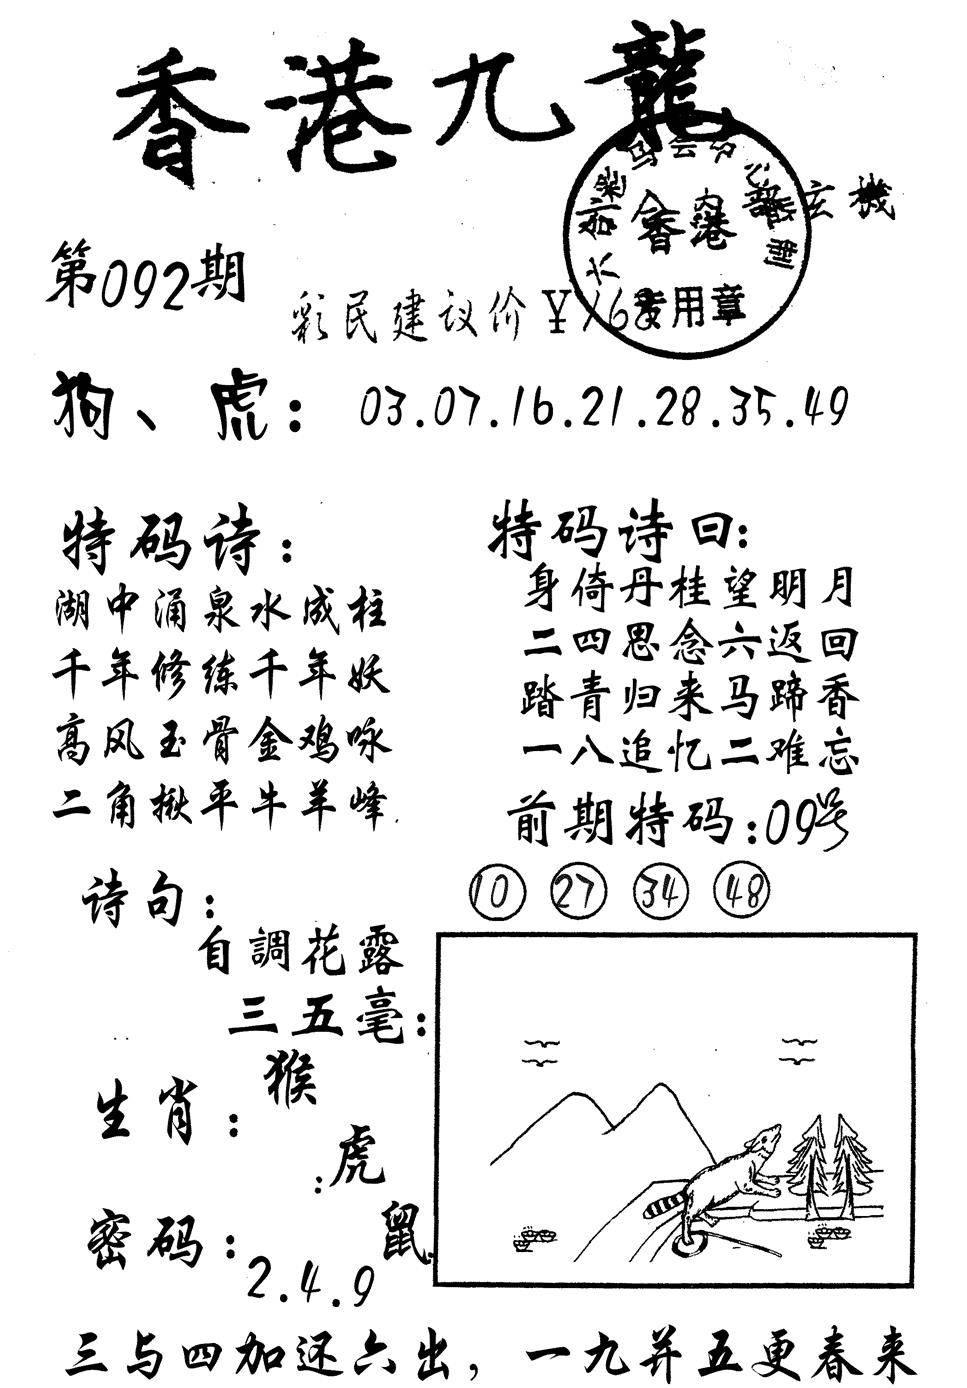 香港九龍
内部玄機
香港
专用章
第092期
彩民建议价￥168
狗、虎：03.07.16.21.28.35.49
特码诗：
湖中涌泉水成柱
千年修练千年妖
高风玉骨金鸡咏
二角揪平牛羊峰
特码诗曰：
身倚丹桂望明月
二四思念六返回
踏青归来马蹄香
一八追忆二难忘
前期特码：09号
10 27 34 48
诗句：
自調花露
三五毫：
生肖：猴
虎
鼠
密码：
2.4.9
三与四加还六出，一九并五更春来